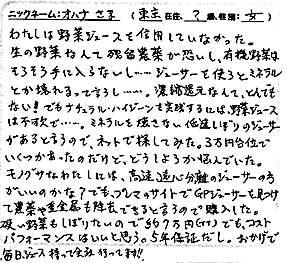 ニックネーム：オハナ さま （東京在住、？歳、性別：女）
わたしは野菜ジュースを信用していなかった。
生の野菜なんて残留農薬が恐いし、有機野菜は
そうそう手に入らないし……ジューサーを使うとミネラル
とか壊れるって言うし……。濃縮還元なんて、とんでも
ない！でもナチュラル・ハイジーンを実践するには、野菜ジュース
は不可欠で……。ミネラルを壊さない低速しぼりのジューサー
があると言うので、ネットで探してみた。3万円台位で
いくつかあったのだけど、どうしようか悩んでいた。
モノグサなわたしには、高速遠心分離のジューサーの方
がいいのかな？でもプレマのサイトでGPジューサーを見つけ
て農薬や重金属も除去できると言うので購入した。
硬い野菜もしぼりたいので約9万円（TT）でも、コスト
パフォーマンスはいいと思う。5年保証だし。おかげで
毎日ジュース持って会社行ってます!!